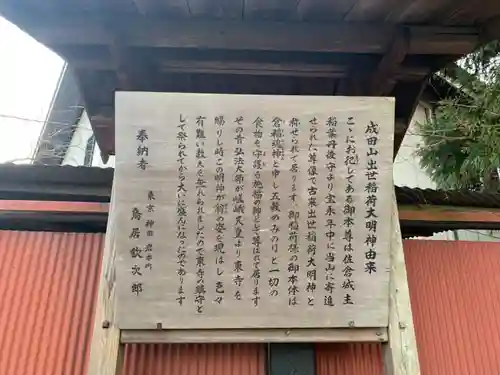 成田山出世稲荷大明神由来
こゝにお祀してある御本尊は佐倉城主
稲葉丹後守より宝永年中に当山に寄進
せられた尊像で古来出世稲荷大明神と
称せられて居ります、御稲荷様の御本体は
倉稲魂神と申し五穀のみのり、一切の
食物を守護る施福の御として尊ばれて居ります
その昔弘法大師が嵯峨天皇より東寺を
賜りし時この明神が翁の姿を現はし色々
有難い教えを垂れられましたので東寺の鎮守と
して祭られてから大いに盛んになったのであります
奉納者
東京神田岩本町
鳥居歓次郎